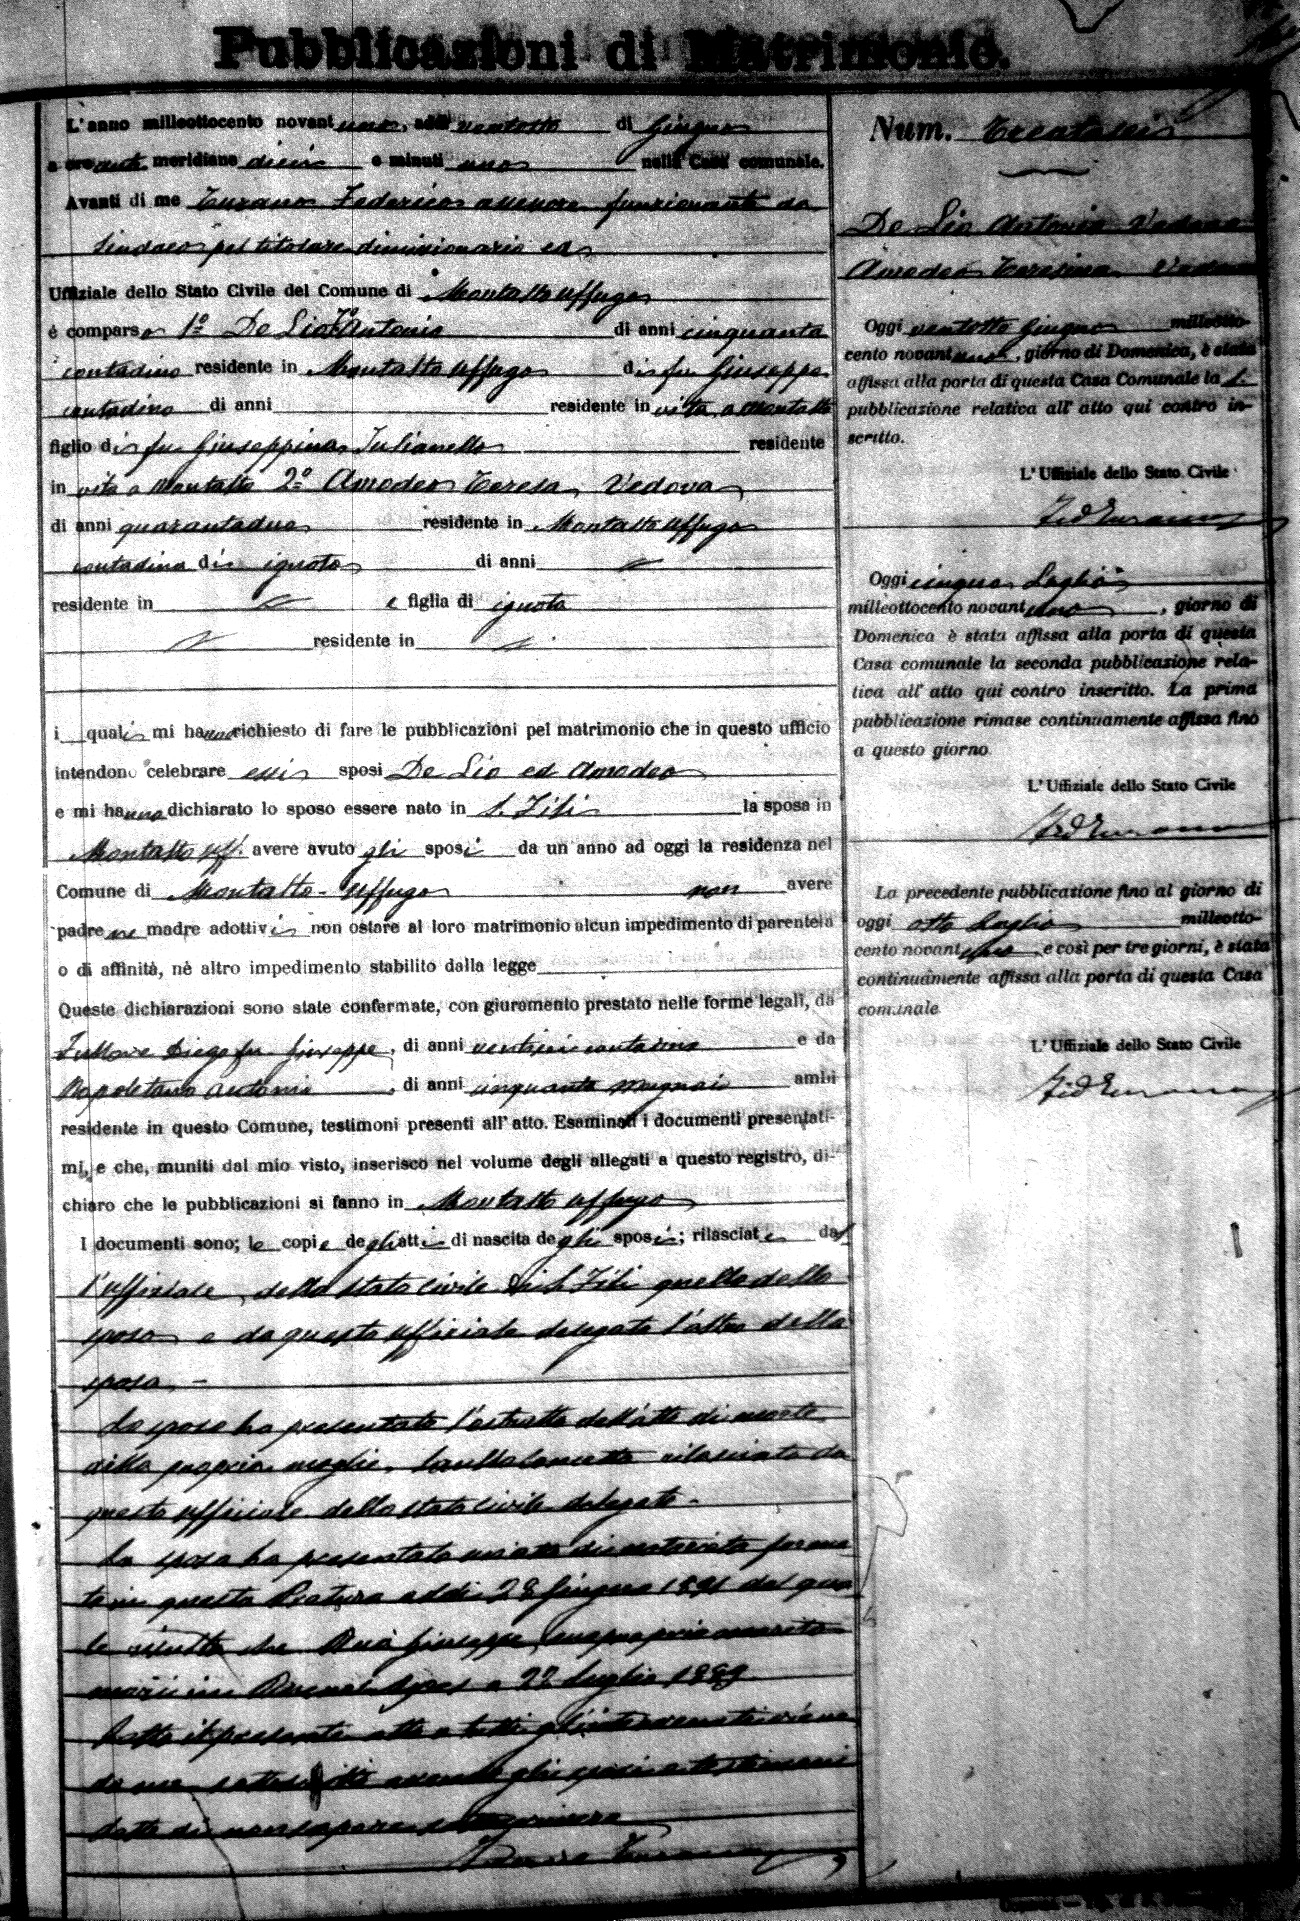 Pubblicazioni di Matrimonio.
L'anno milleottocento novantuno, addì ventotto di Giugno
a ore anti meridiane dieci e minuti uno nella Casa comunale.
Avanti di me Turano Federico assessore funzionante da
Sindaco pel titolare dimissionario ed
Uffiziale dello Stato Civile del Comune di Montalto Uffugo
è comparso 1º De Lio Antonio di anni cinquanta
contadino residente in Montalto Uffugo di fu Giuseppe
contadino di anni residente in vita a Montalto
figlio di fu Giuseppina Iulianello residente
in vita a Montalto 2º Amodeo Teresa, Vedova
di anni quarantadue residente in Montalto Uffugo
contadina di ignoto di anni
residente in e figlia di ignota
residente in
i quali mi hanno richiesto di fare le pubblicazioni pel matrimonio che in questo ufficio
intendono celebrare essi sposi De Lio ed Amodeo
e mi hanno dichiarato lo sposo essere nato in S. Fili la sposa in
Montalto Uff. avere avuto gli sposi da un anno ad oggi la residenza nel
Comune di Montalto Uffugo non avere
padre ne madre adottivi non ostare al loro matrimonio alcun impedimento di parentela
o di affinità, nè altro impedimento stabilito dalla legge
Queste dichiarazioni sono state confermate, con giuramento prestato nelle forme legali, da
Diego fu Giuseppe, di anni contadino e da
Napoletano Antonio, di anni cinquanta mugnai ambi
residente in questo Comune, testimoni presenti all'atto. Esaminati i documenti presentati-
mi, e che, muniti dal mio visto, inserisco nel volume degli allegati a questo registro, di-
chiaro che le pubblicazioni si fanno in Montalto Uffugo
I documenti sono; le copie degli atti di nascita degli sposi; rilasciate dal
l'uffiziale dello stato civile di S. Fili quello dello
sposo e da questo ufficiale delegato l'altro della
sposa. -
Lo sposo ha presentato l'estratto dell'atto di morte
della propria moglie, rilasciato da
questo ufficiale dello stato civile delegato -
La sposa ha presentato un atto di notorietà forma
to in questa Pretura addì 28 Giugno 1891 dal qua
le risulta che Ruà Giuseppe, suo proprio marito
morì in Buenos Ayres a 22 Luglio 1889
Letto il presente atto a tutti gl'intervenuti viene
da me sottoscritto avendo gli sposi e testimoni
detto di non sapere scrivere
Federico Turano
Num. Trentasei
De Lio Antonio Vedovo
Amodeo Teresina Vedova
Oggi ventotto Giugno milleotto-
cento novantuno, giorno di Domenica, è stata
affissa alla porta di questa Casa Comunale la 1.
pubblicazione relativa all'atto qui contro in-
scritto.
L'Uffiziale dello Stato Civile
Fed Turano
Oggi cinque Luglio
milleottocento novantuno, giorno di
Domenica è stata affissa alla porta di questa
Casa comunale la seconda pubblicazione rela-
tiva all'atto qui contro inscritto. La prima
pubblicazione rimase continuamente affissa fino
a questo giorno
L'Uffiziale dello Stato Civile
Fed Turano
La precedente pubblicazione fino al giorno di
oggi otto Luglio milleotto-
cento novantuno e così per tre giorni, è stata
continuamente affissa alla porta di questa Casa
comunale
L'Uffiziale dello Stato Civile
Fed Turano